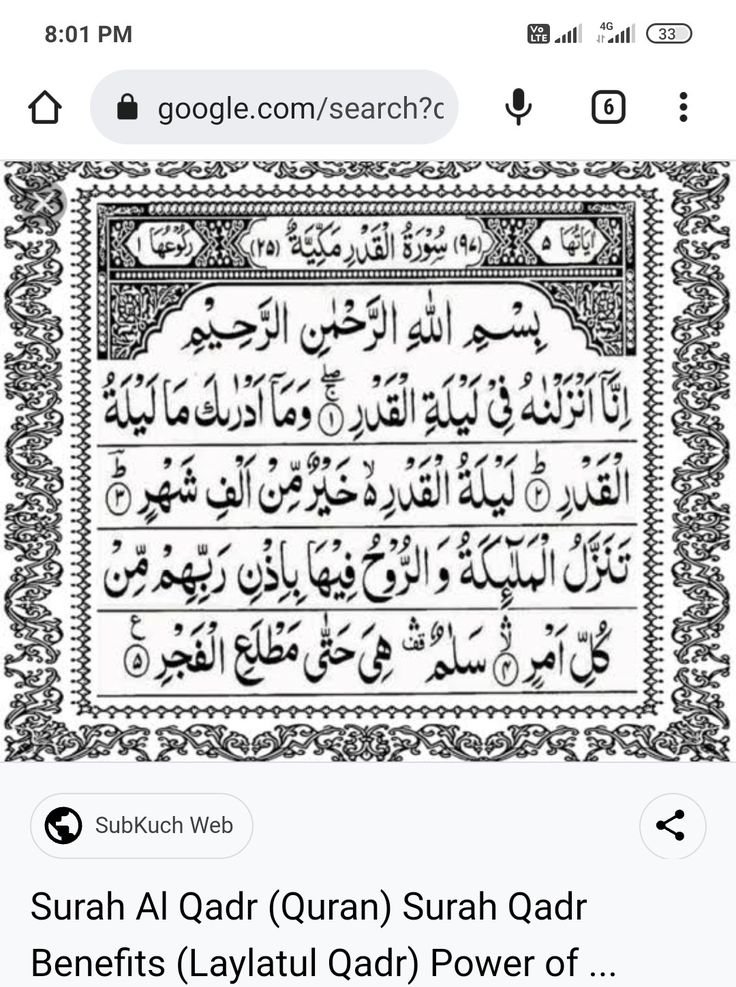 8:01 PM Vo LTE 4G 33
google.com/search?c 6
اٰيَاتُهَا ٥ (٩٧) سُوْرَةُ الْقَدْرِ مَكِّيَّةٌ (٢٥) رُكُوْعُهَا ١
بِسْمِ اللّٰهِ الرَّحْمٰنِ الرَّحِيْمِ
اِنَّاۤ اَنْزَلْنٰهُ فِيْ لَيْلَةِ الْقَدْرِ ۝١ۚۖ وَمَاۤ اَدْرٰىكَ مَا لَيْلَةُ
الْقَدْرِ ۝٢ؕ لَيْلَةُ الْقَدْرِ ۙ۬ خَيْرٌ مِّنْ اَلْفِ شَهْرٍ ۝٣ؕ
تَنَزَّلُ الْمَلٰٓئِكَةُ وَ الرُّوْحُ فِيْهَا بِاِذْنِ رَبِّهِمْ مِّنْ
كُلِّ اَمْرٍ ۝٤ۙ سَلٰمٌ ۛ قف هِيَ حَتّٰى مَطْلَعِ الْفَجْرِ ۝٥ ع
SubKuch Web
Surah Al Qadr (Quran) Surah Qadr
Benefits (Laylatul Qadr) Power of ...